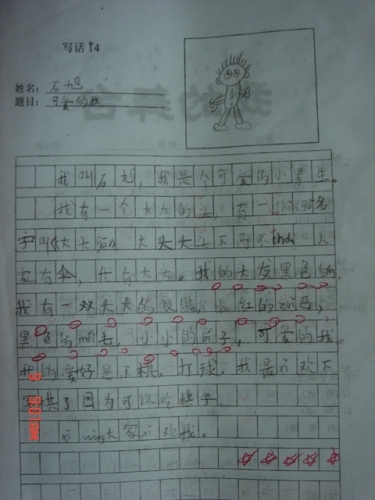 写话 14
姓名：石旭
题目：可爱的我
我叫石旭，我是个可爱的小学生。
我有一个大大的头，有一 名
字叫《大头 》大头大头下雨不 人
家有伞，我有大大。我的头发黑色的，
我有一双大大的眼睛，红红的zui巴，
黑色的mei毛，小小的 子，可爱的我。
我的爱好是下棋，打球，我最 欢下
棋了因为可以吃棋子。
大家 欢我。